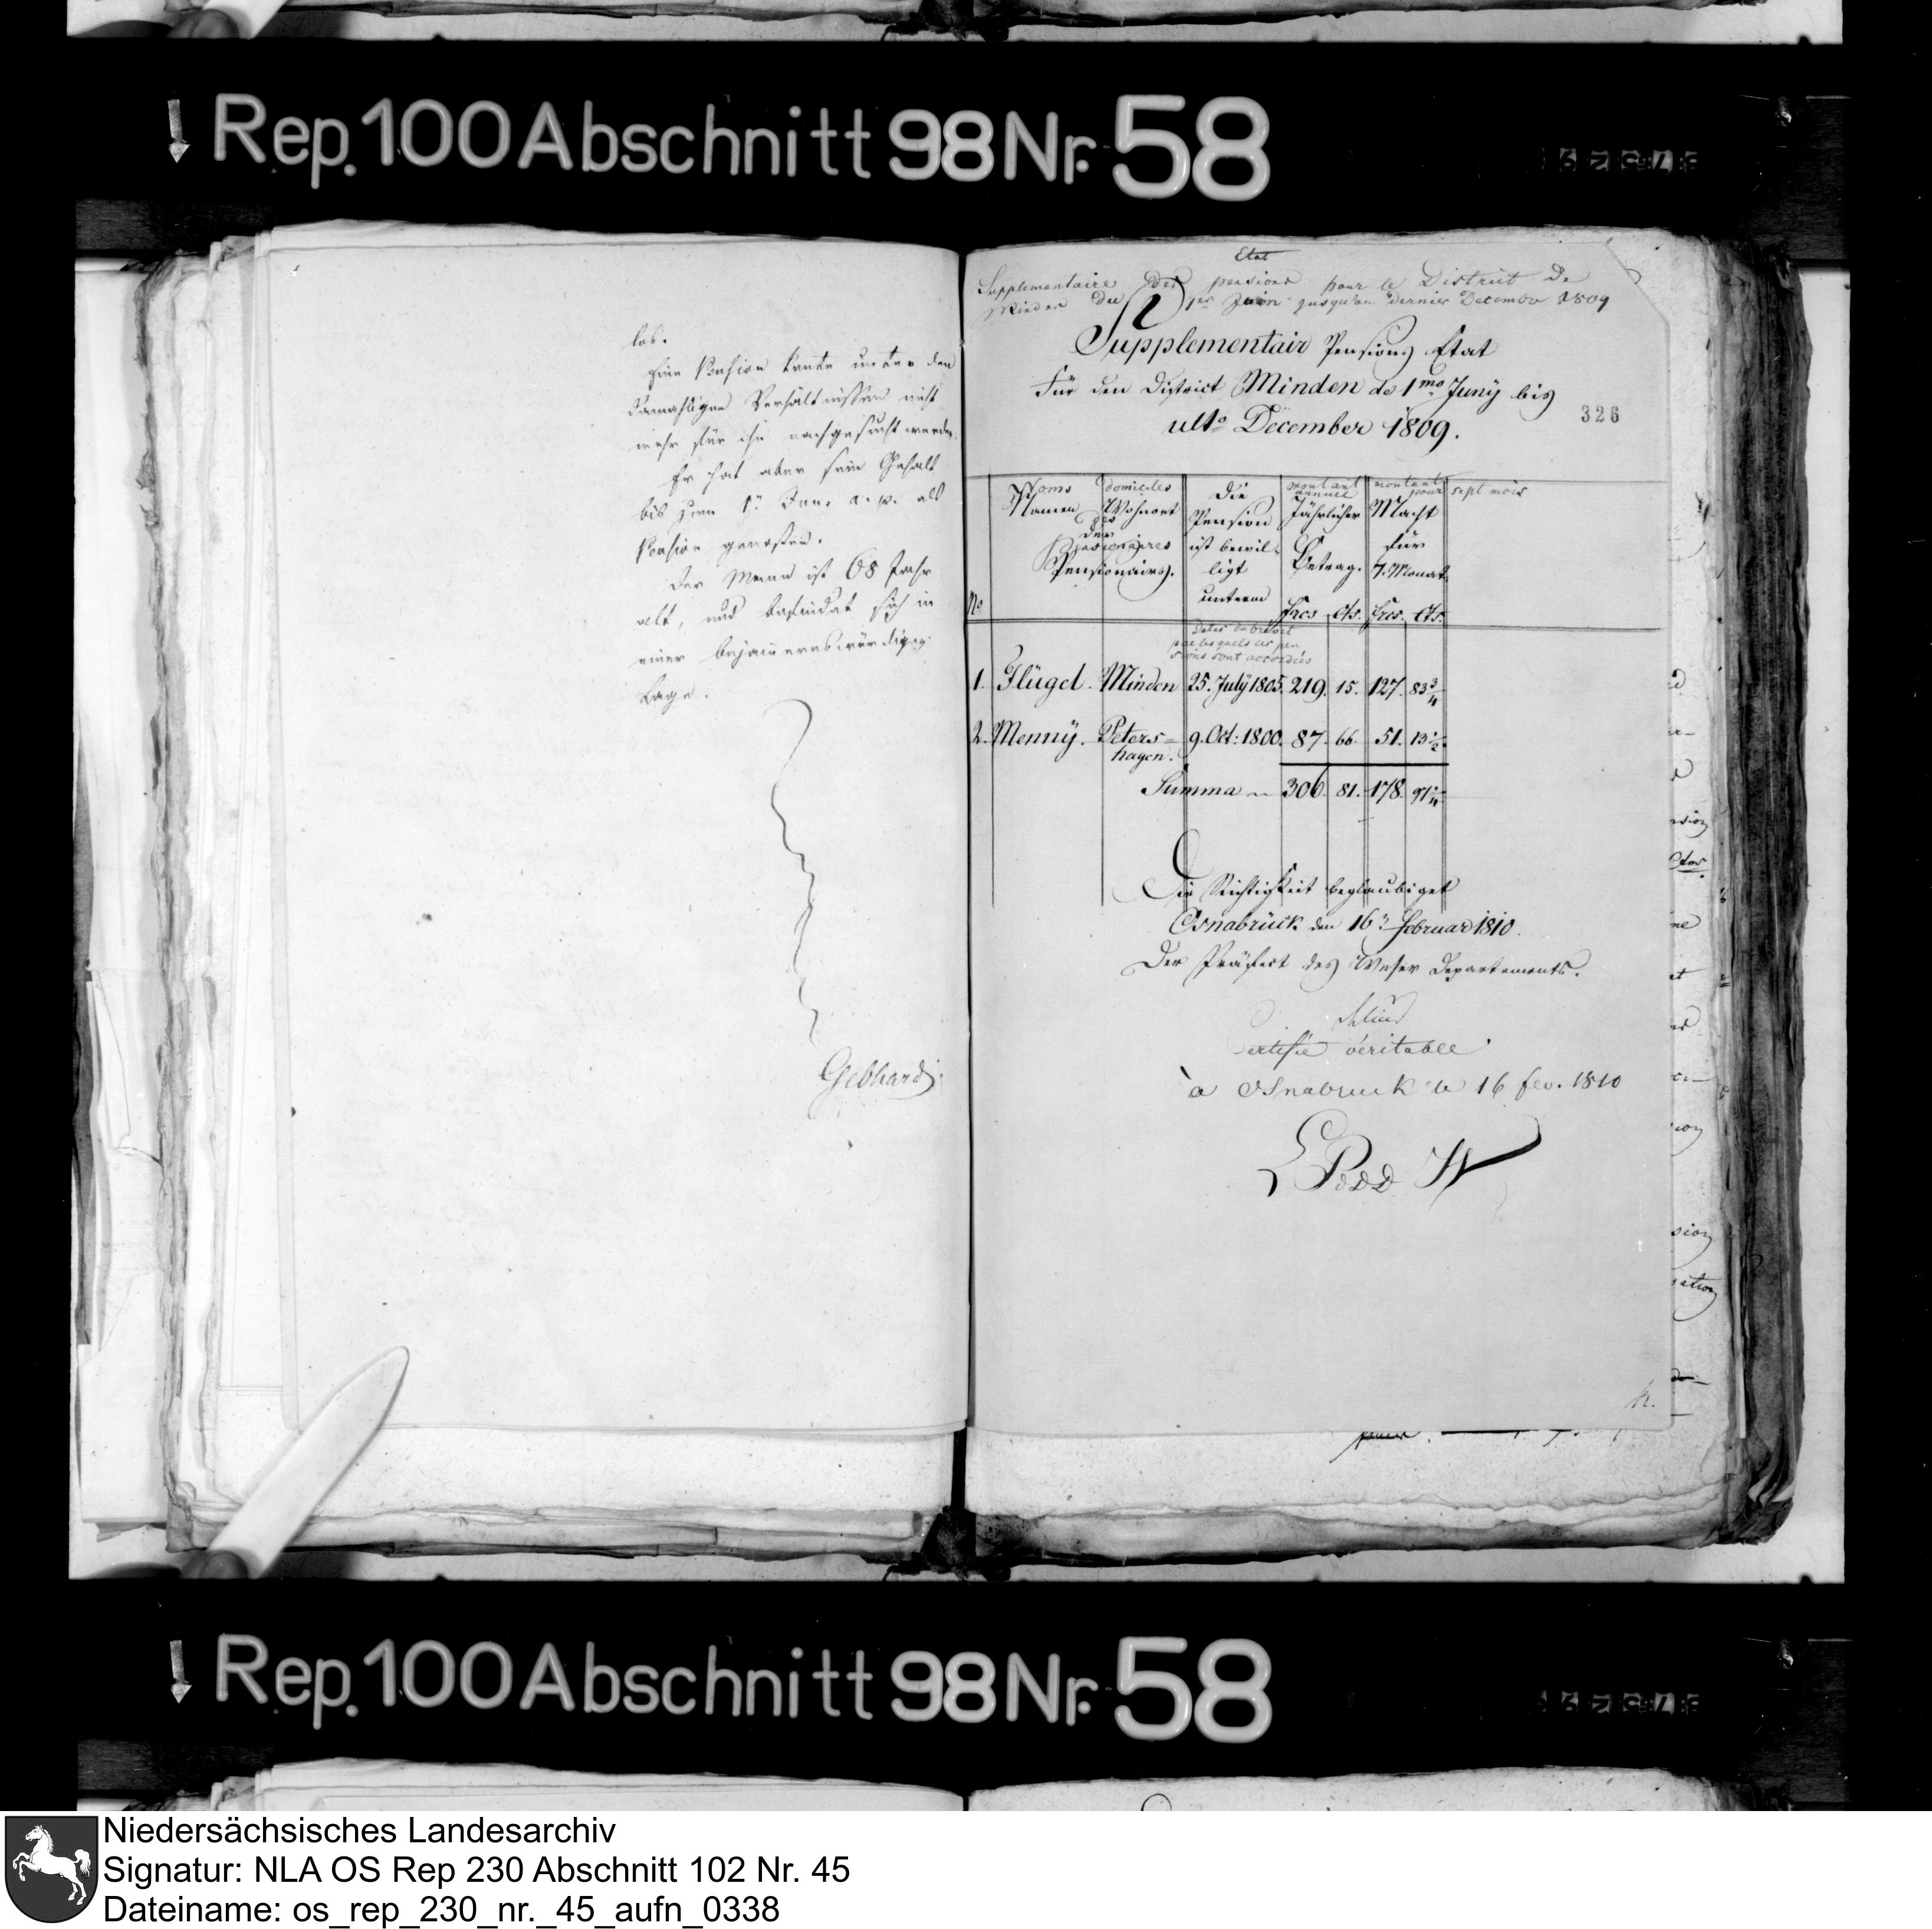 Rep. 100 Abschnitt 98 Nr. 58
los.
Eine Pension konte unter den
damahligen Verhältnissen nicht
mehr für ihn nachgesucht werden.
Er hat aber sein Gehalt
bis zum 1t Jan. a. p. als
Pension genossen.
Der Mann ist 68 Jahr
alt, und befindet sich in
einer bejammernswürdigen
Lage.
Gebhard
Etat
Supplementaire des pensions pour le District de
Minden du 1er Juin jusqu'au dernier Decembre 1809
Supplementair Pensions Etat
Für den District Minden de 1mo Juny bis
ulto December 1809.
326
No
Noms Namen
domiciles Wohnort
des
der
Pensionaires
Pensionairs.
Die Pension ist bewilligt unterm
montant annuel
Jährlicher Betrag.
frcs. Cts.
montant pour sept mois
Macht für 7. Monat
frcs. Cts.
Dates du brevet
par lesquels les pen
sions sont accordées
1. Flügel. Minden 25. July 1805. 219. 15. 127. 83 3/4
2. Menny. Peters=
hagen. 9. Oct: 1800. 87. 66. 51. 13 1/2
Summa 306. 81. 178. 97 1/4
Die Richtigkeit beglaubiget
Osnabrück den 16t Februar 1810.
Der Präfect des Weser Departements.
Certifié véritable
à Osnabruck le 16 fev. 1810
L P. d. D. W
Rep. 100 Abschnitt 98 Nr. 58
Niedersächsisches Landesarchiv
Signatur: NLA OS Rep 230 Abschnitt 102 Nr. 45
Dateiname: os_rep_230_nr._45_aufn_0338